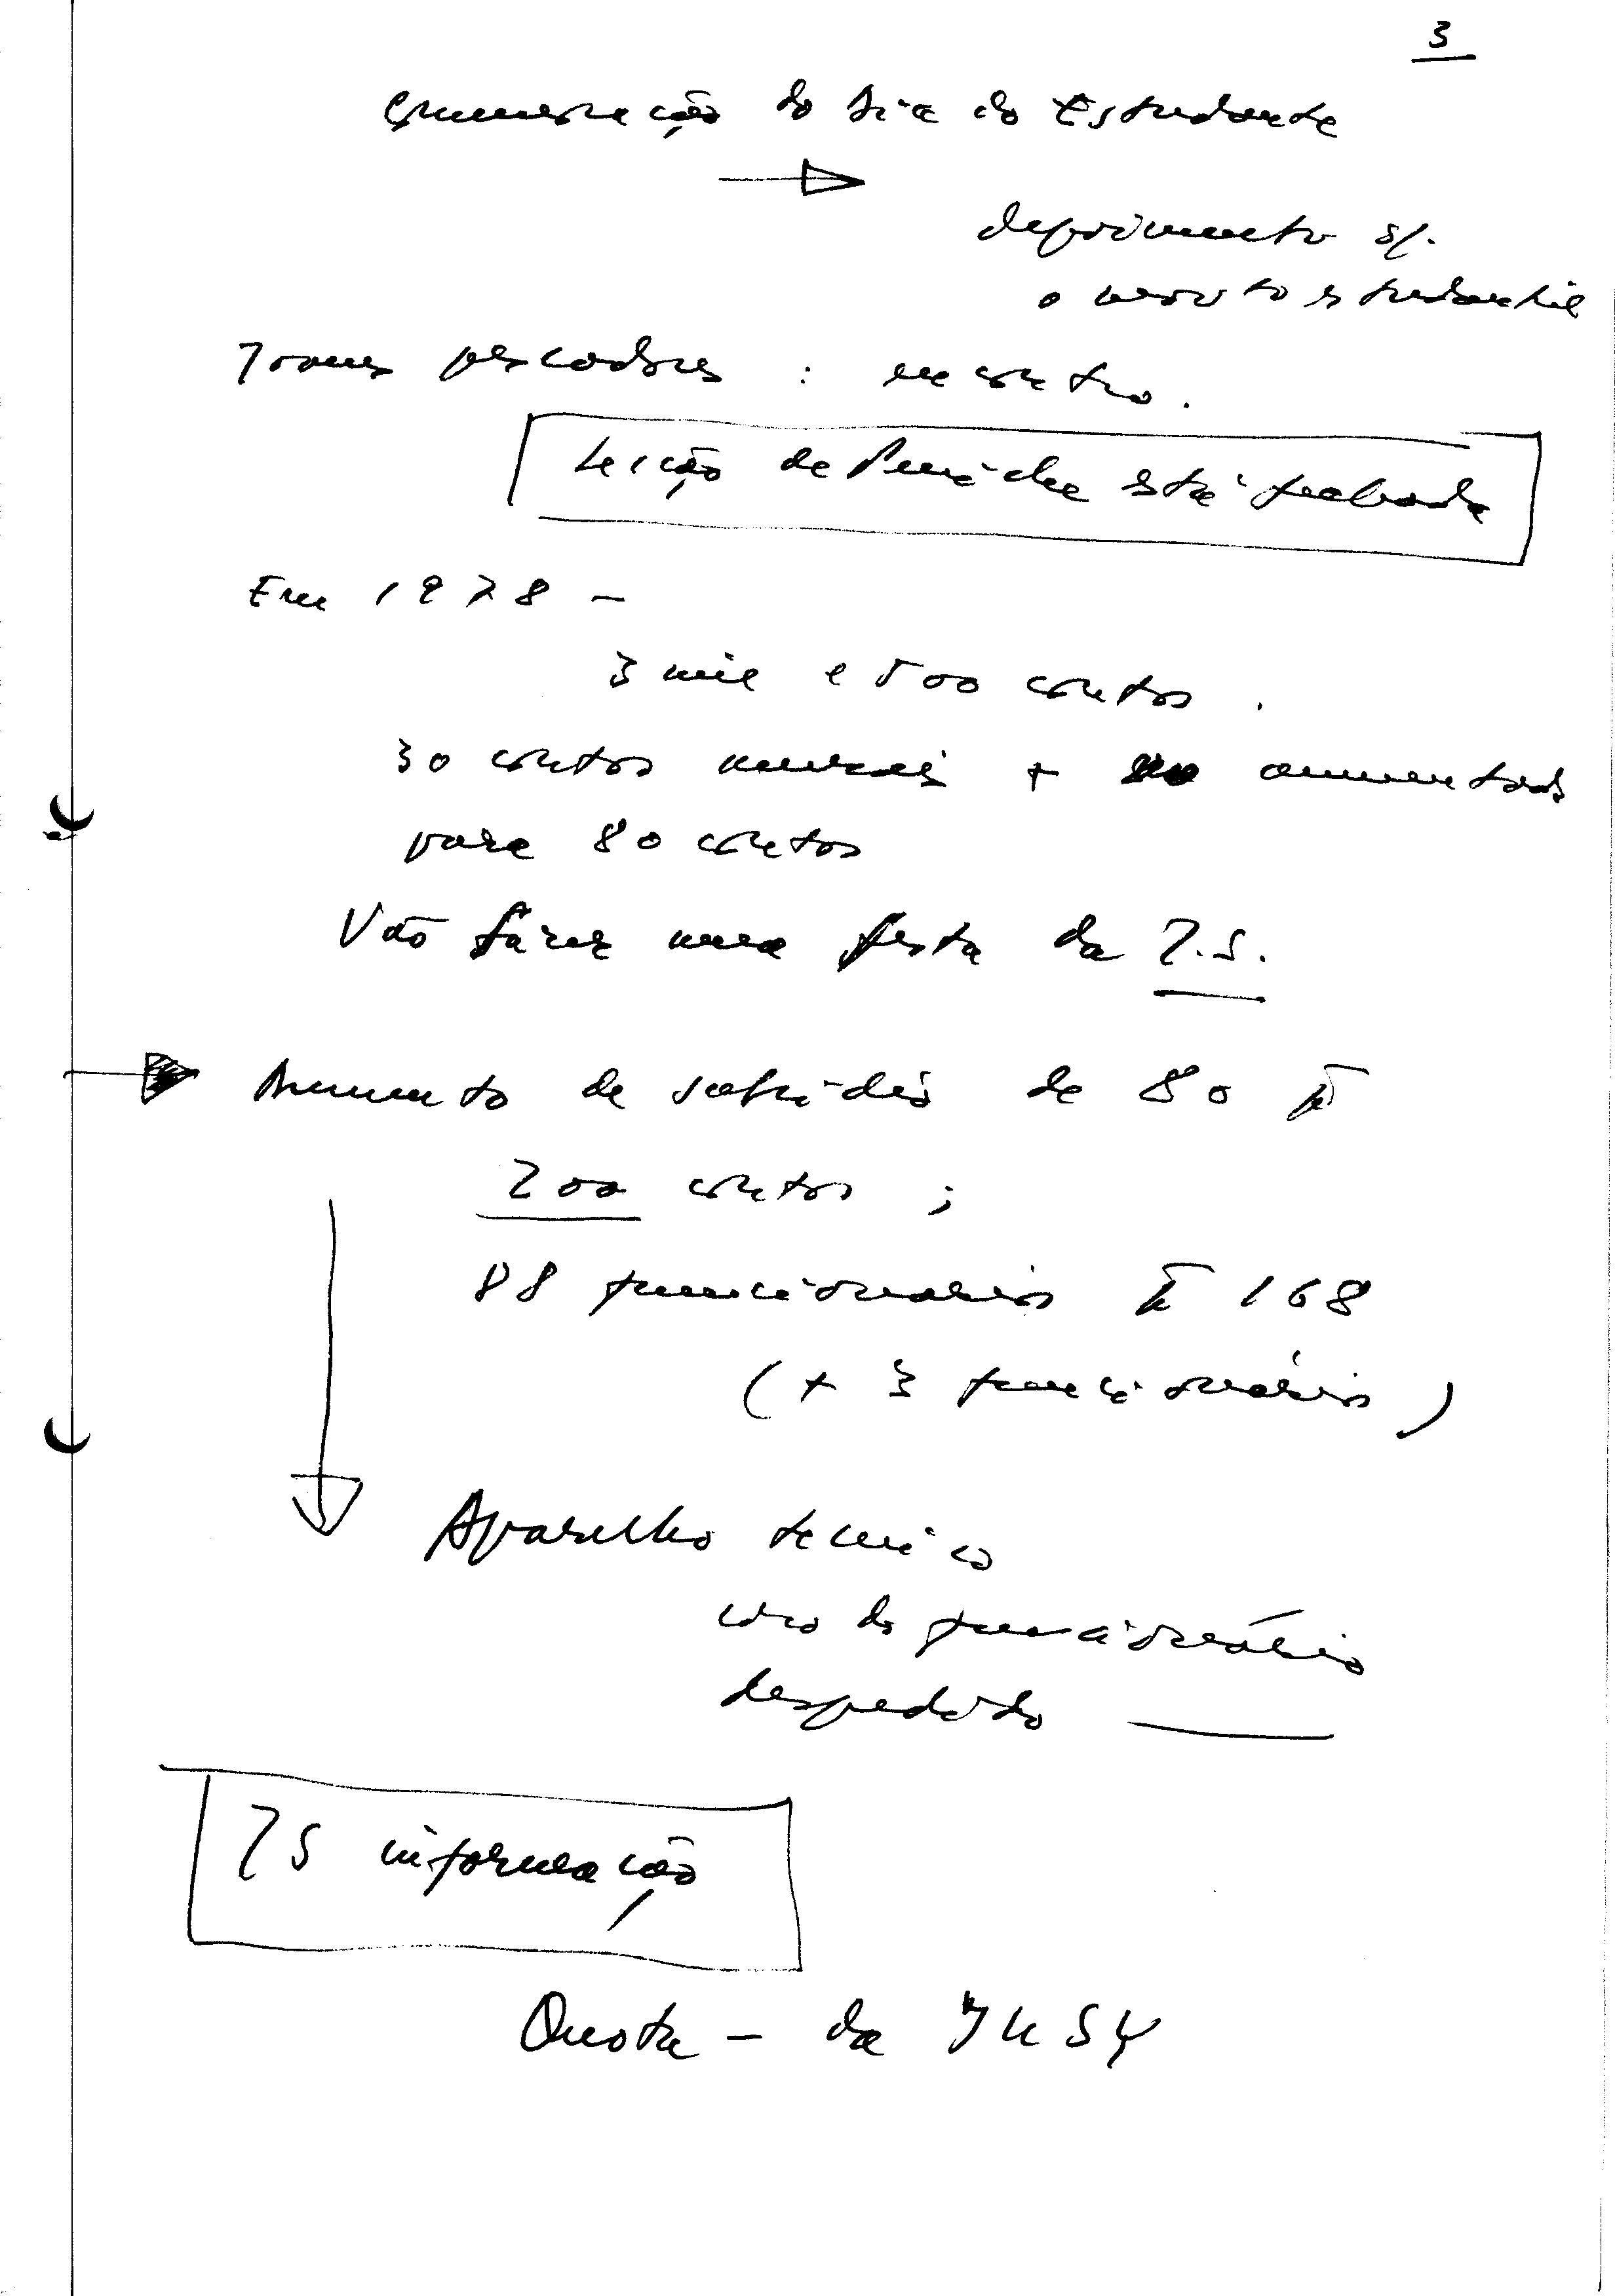 3
Comemoração do Dia do Estudante
depoimento s/.
o movto estudantil
Jovens pescadores : encontro.
Secção de Peniche está fechada
Em 1978 -
3 mil e 500 contos.
30 contos mensais + aumentados
para 80 contos
Vão fazer uma festa da J.S.
Aumento de subsídio de 80 p̄
200 contos ;
88 funcionários p̄ 168
(+ 3 funcionários)
Aparelho técnico
caso do funcionário
despedido
JS informação
Quota - da IUSY